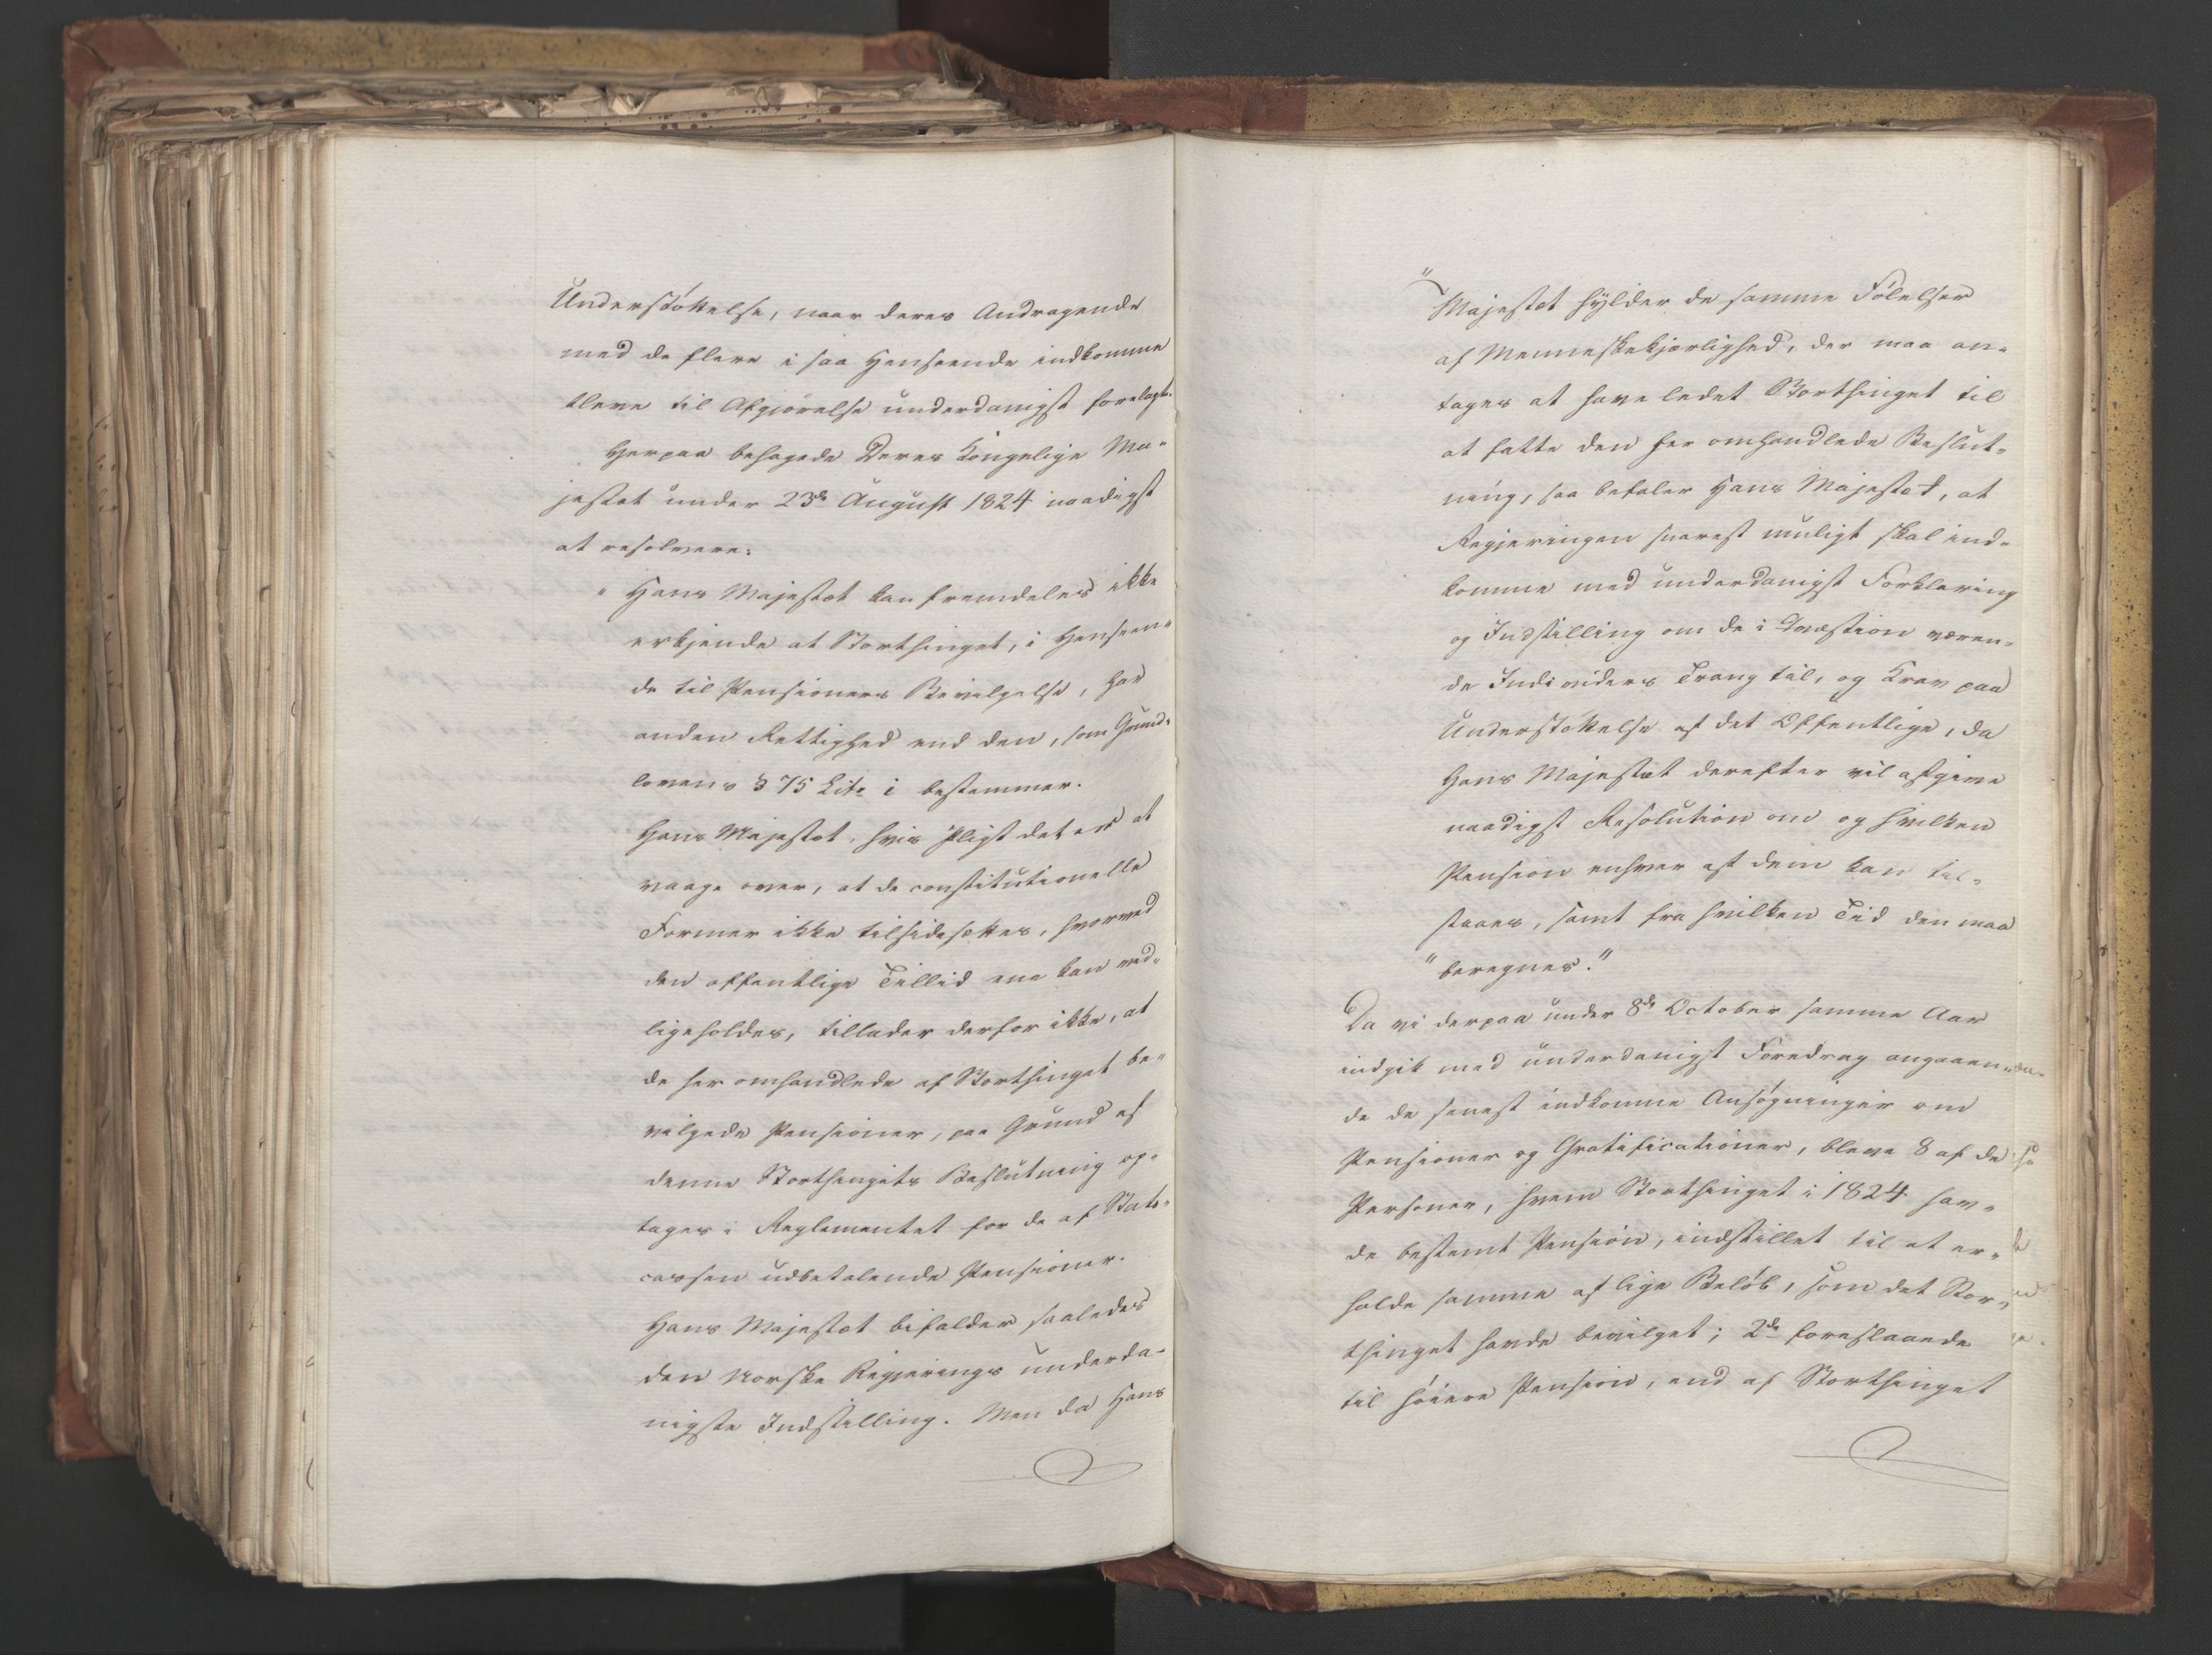 Understøttelse, naar deres Andragende
med de flere i saa Henseende indkomme
bleve til Afgjørelse underdanigst forelagt.
Herpaa behagede Deres Kongelige Ma-
jestæt under 23de August 1824 naadigst
at resolvere:
" Hans Majestæt kan fremdeles ikke
erkjende at Storthinget, i Henseen-
de til Pensioners Bevilgelse, har
anden Rettighed end den, som Grund-
lovens § 75 Litr i bestemmer.
Hans Majestæt, hvis Pligt det er at
vaage over, at de constitutionelle
Former ikke tilsidesættes, hvorved
den offentlige Tillid ene kan ved-
ligeholdes, tillader derfor ikke, at
de her omhandlede af Storthinget be-
vilgede Pensioner, paa Grund af
denne Storthingets Beslutning op-
tages i Reglementet for de af Stats-
cassen udbetalende Pensioner.
Hans Majestæt bifalder saaledes
den norske Regjerings underda-
nigste Indstilling. Men da Hans
" Majestæt hylder de samme Følelser
af Menneskekjærlighed, der maa an-
tages at have ledet Storthinget til
at fatte den her omhandlede Beslut-
ning, saa befaler Hans Majestæt, at
Regjeringen snarest muligt skal ind-
komme med underdanigst Forklaring
og Indstilling om de i Qvæstion væren-
de Individers Trang til, og Krav paa
Understøttelse af det Offentlige, da
Hans Majestæt derefter vil afgive
naadigst Resolution om og hvilken
Pension enhver af dem kan til-
staaes, samt fra hvilken Tid den maa
" beregnes."
Da vi derpaa under 8de October samme Aar
indgik med underdanigst Foredrag angaaen-
de de senest indkomne Ansøgninger om
Pensioner og Gratificationer, bleve 8 af de
Personer, hvem Storthinget i 1824 hav-
de bestemt Pension, indstillet til at er-
holde samme af lige Beløb, som det Stor-
thinget havde bevilget; 2de foreslaaede
til høiere Pension, end af Storthinget